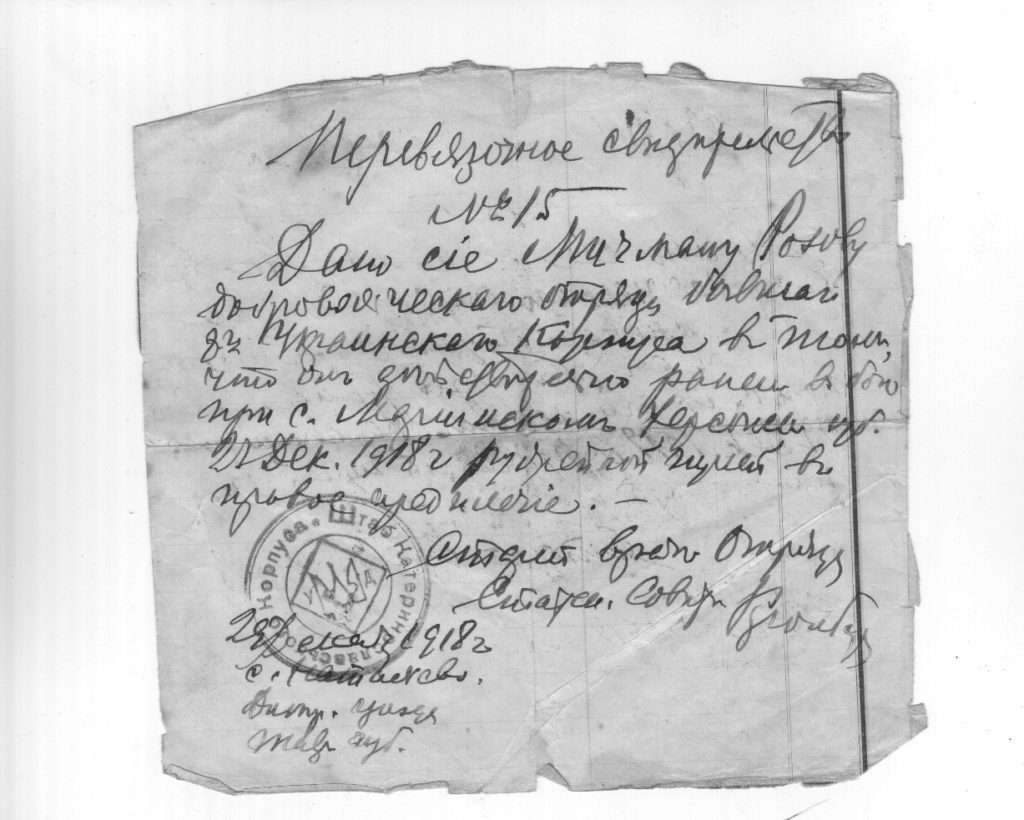 Перевязочное свидетельство
№ 15
Дано сіе Мичману Розову
добровольческаго отряда бывшаго
8го Украинскаго Корпуса в том,
что он действительно ранен в бою
при с. Маріинском Херсонск. губ.
Дек. 1918 г ружейной пулей в
правое предплечіе. —
Старший врач Отряда
Статск. Совет.
Штаб Катеринославського Корпуса
УНР
29 Декаб. 1918 г
с.
Днепр. уезда
Тавр. губ.